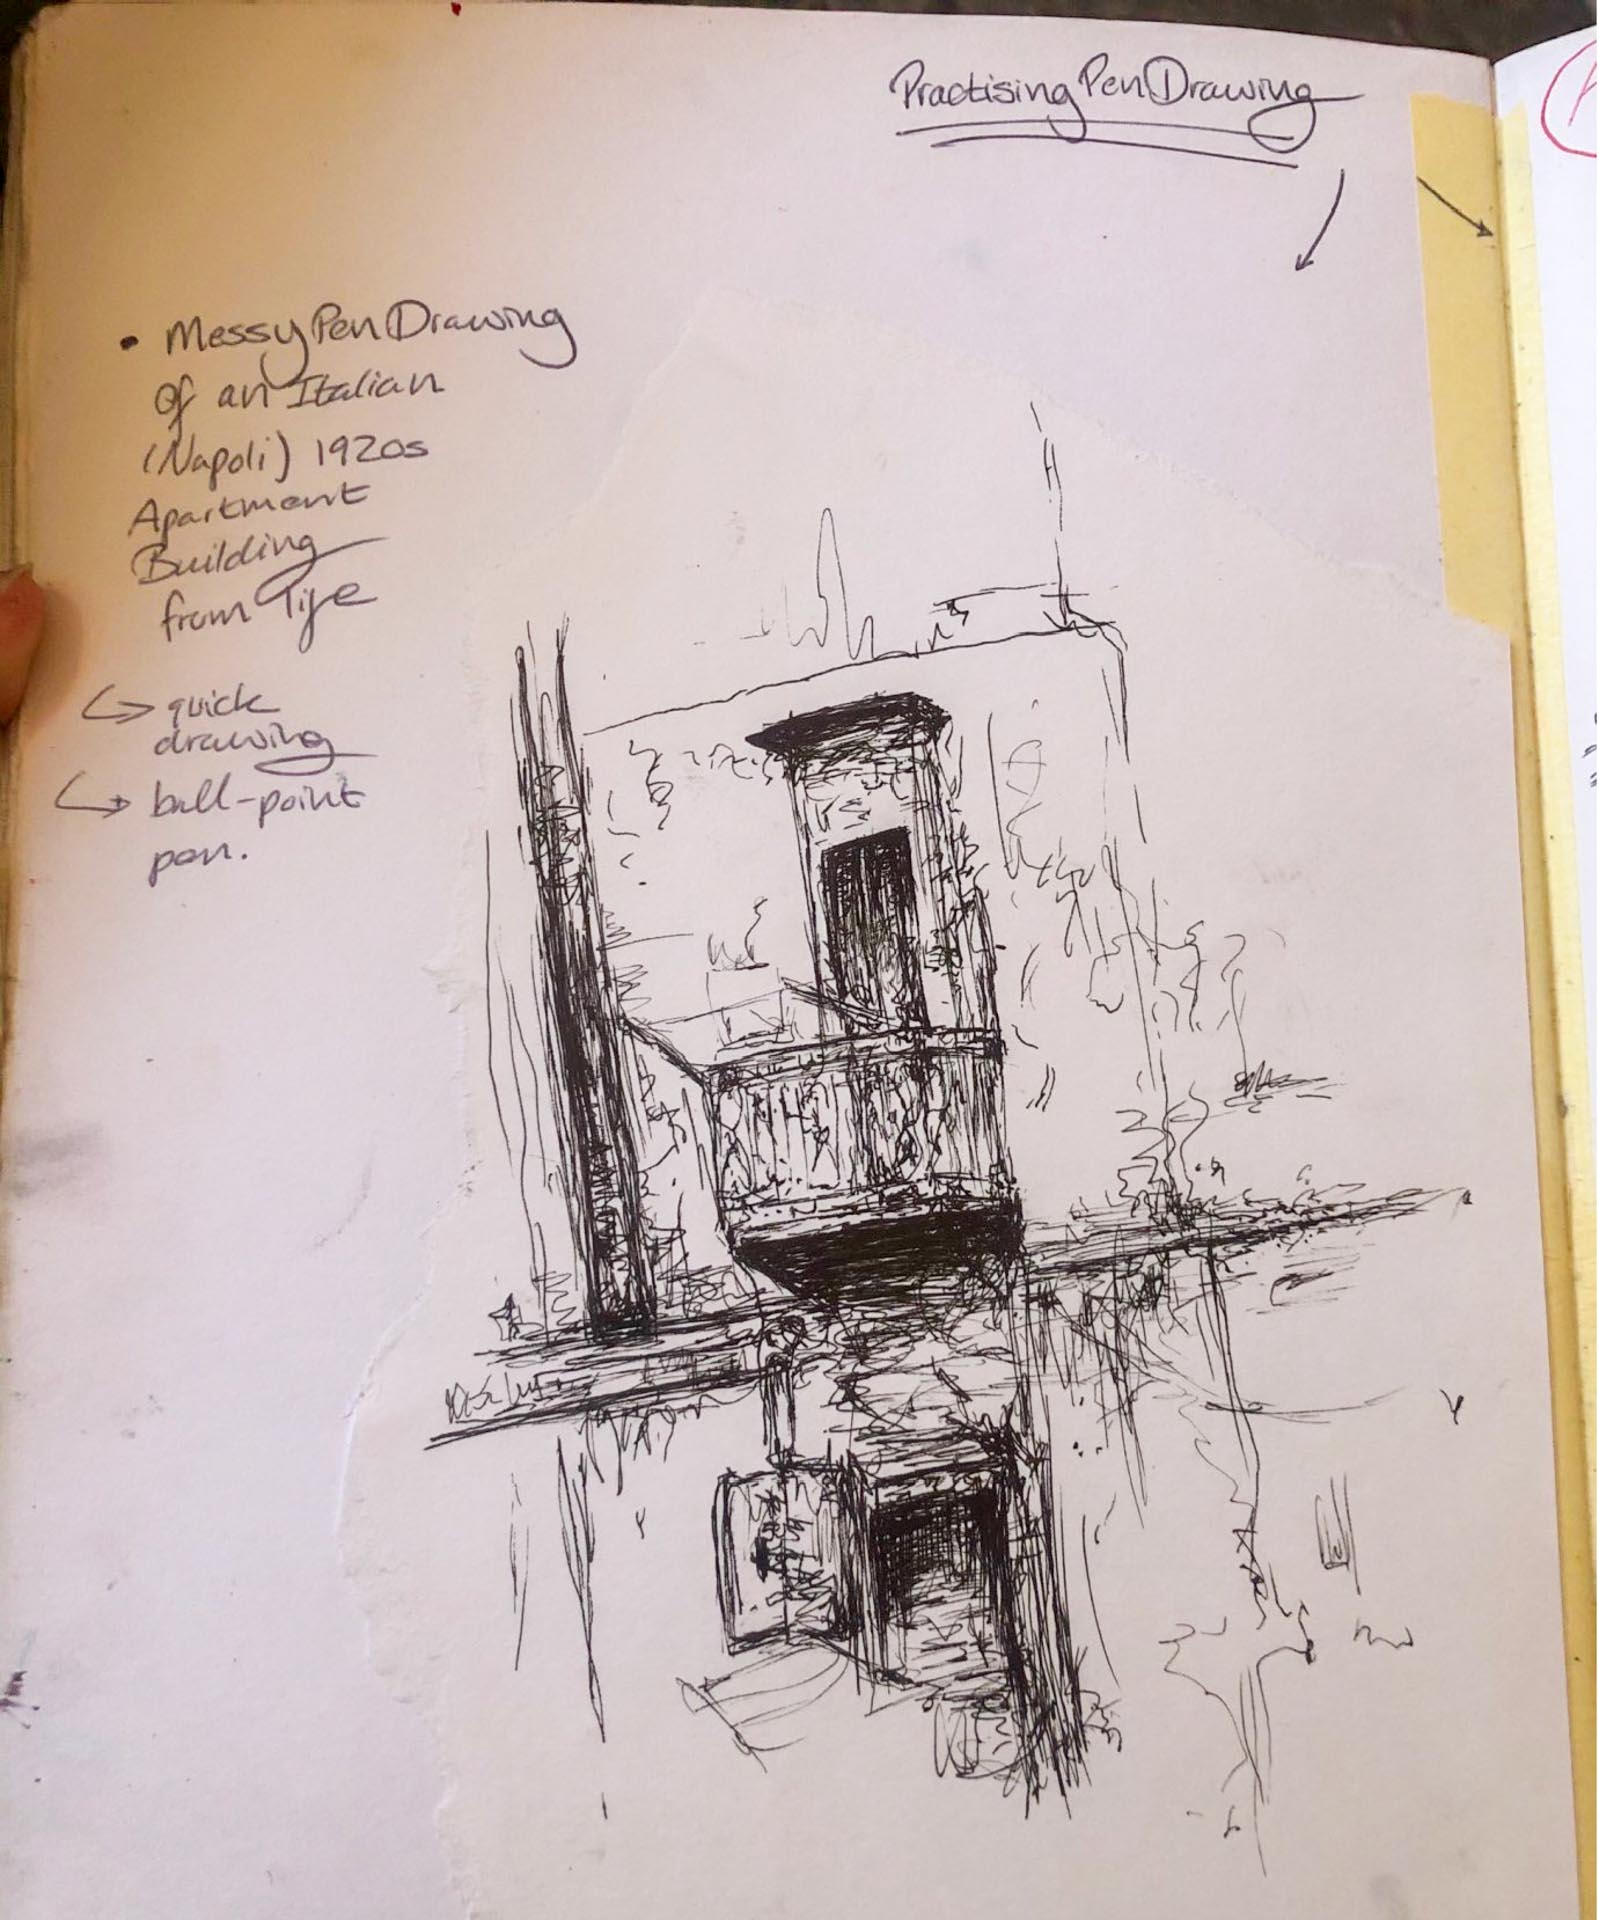 Practising Pen Drawing
• Messy Pen Drawing
Of an Italian
(Napoli) 1920s
Apartment
Building
from life
↳ quick
drawing
↳ ball-point
pen.